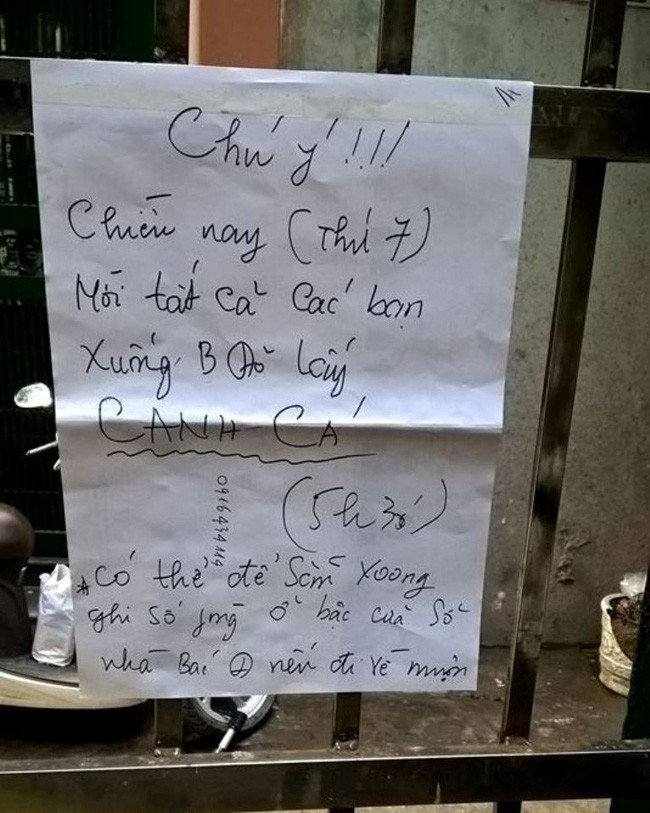 Chú ý!!!
Chiều nay (Thứ 7)
Mời tất cả các bạn
Xuống B lấy
CANH CÁ
(5h30')
* Có thể để sẵn xoong
ghi số ở bậc cửa sổ
nhà Bác nếu đi về muộn